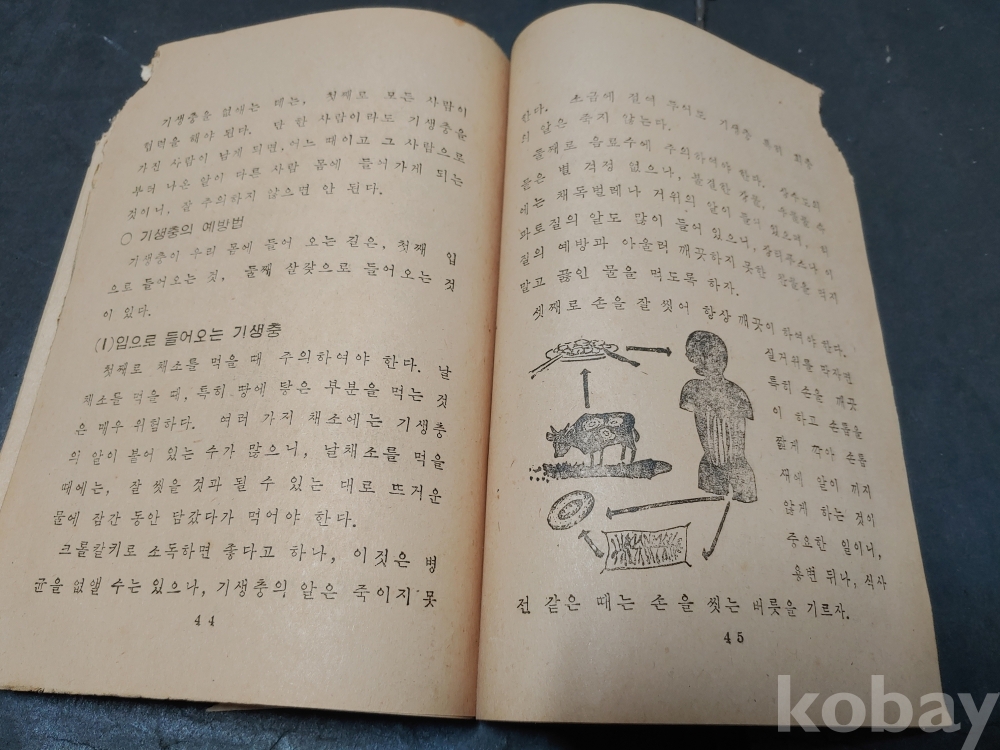 기생충을 없애는 데는, 첫째로 모든 사람이
협력을 해야 된다. 단 한 사람이라도 기생충을
가진 사람이 남게 되면, 어느 때이고 그 사람으로
부터 나온 알이 다른 사람 몸에 들어가게 되는
것이니, 잘 주의하지 않으면 안 된다.
○ 기생충의 예방법
기생충이 우리 몸에 들어 오는 길은, 첫째 입
으로 들어오는 것, 둘째 살갗으로 들어오는 것
이 있다.
(1)입으로 들어오는 기생충
첫째로 채소를 먹을 때 주의하여야 한다. 날
채소를 먹을 때, 특히 땅에 닿은 부분을 먹는 것
은 매우 위험하다. 여러 가지 채소에는 기생충
의 알이 붙어 있는 수가 많으니, 날채소를 먹을
때에는, 잘 씻을 것과 될 수 있는 대로 뜨거운
물에 잠간 동안 담갔다가 먹어야 한다.
크롤칼키로 소독하면 좋다고 하나, 이것은 병
균을 없앨 수는 있으나, 기생충의 알은 죽이지 못
44
한다. 소금에 절여 두어도 기생충 특히 회충
의 알은 죽지 않는다.
둘째로 음료수에 주의하여야 한다. 상수도의
물은 별 걱정 없으나, 불결한 강물, 우물물 속
에는 채독벌레나 거위의 알이 들어 있으며, 또
파토질의 알도 많이 들어 있으니, 이
질의 예방과 아울러 깨끗하지 못한 물을 먹지
말고 끓인 물을 먹도록 하자.
셋째로 손을 잘 씻어 항상 깨끗이 하여야 한다.
실거위를 막자면
특히 손을 깨끗
이 하고 손톱을
짧게 깎아 손톱
새에 알이 끼지
않게 하는 것이
중요한 일이니,
용변 뒤나, 식사
전 같은 때는 손을 씻는 버릇을 기르자.
45
kobay